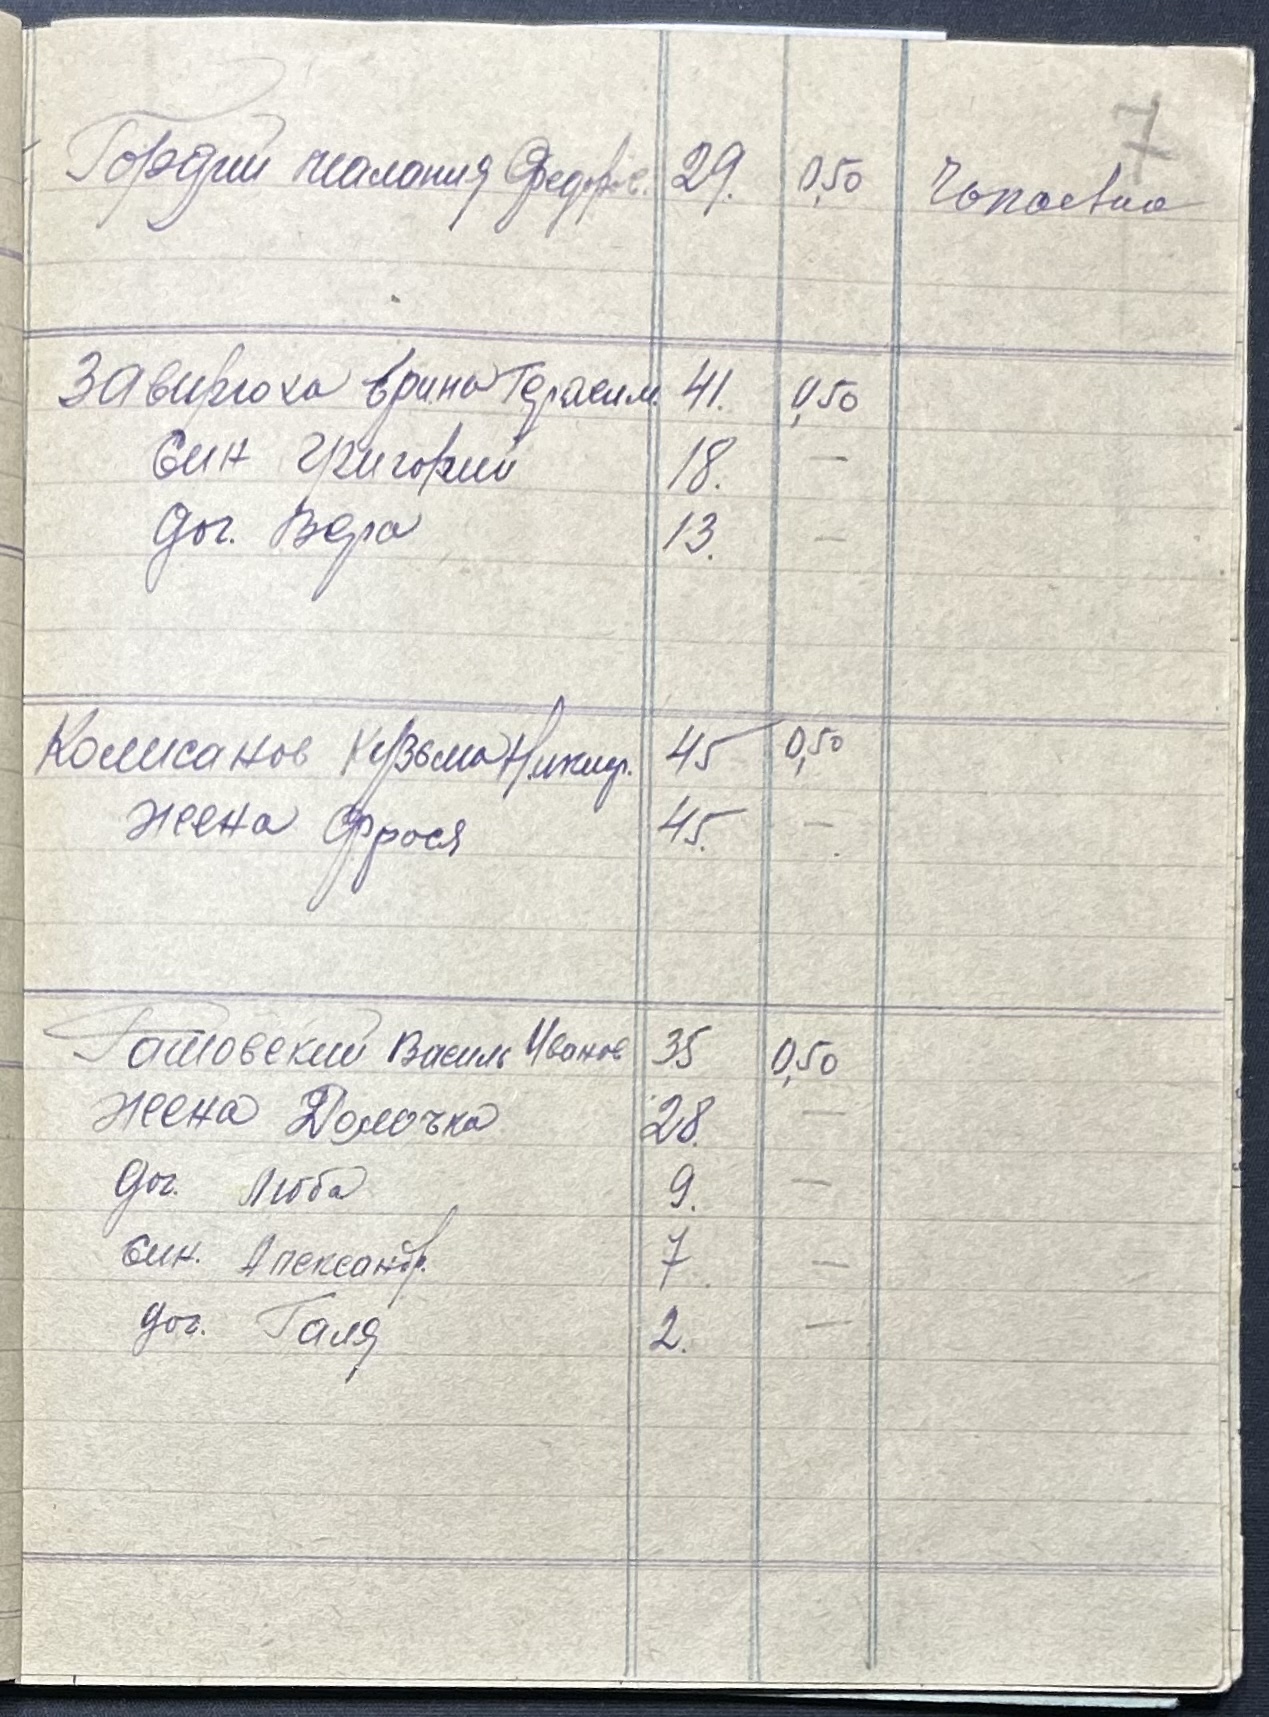 7
Гордий Малания Федоров. 29. 0,50 Чапаевка
Завирюха Ірина Герасим. 41. 0,50
син Григорий 18. —
доч. Вера 13. —
Комисанов Кузьма Никиф. 45 0,50
жена Фрося 45. —
Гатовский Василь Иванов 35 0,50
жена 28. —
доч. Люба 9. —
син. Александр. 7 —
доч. Галя 2. —